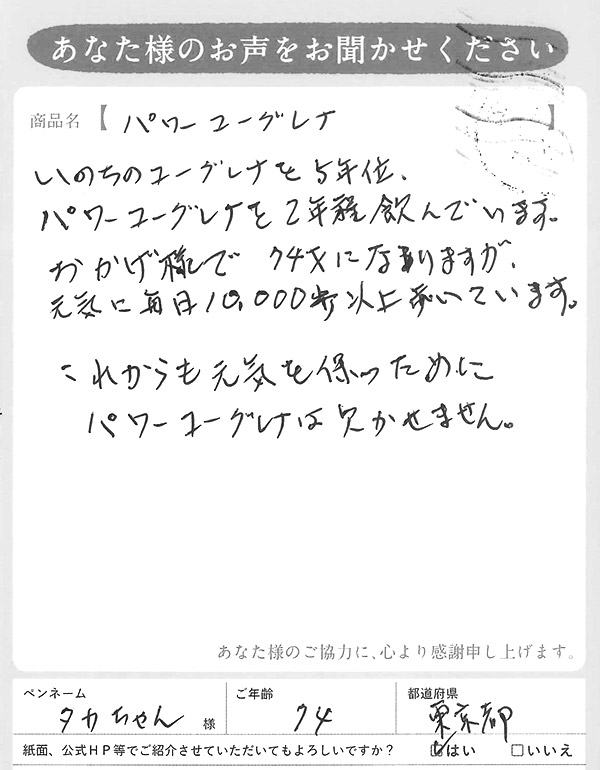 あなた様のお声をお聞かせください
商品名【パワーユーグレナ】
いのちのユーグレナを5年位、
パワーユーグレナを2年程飲んでいます。
おかげ様で 74才になりますが、
元気に毎日10,000歩以上歩いています。
これからも元気を保つために
パワーユーグレナは欠かせません。
あなた様のご協力に、心より感謝申し上げます。
ペンネーム ご年齢 都道府県
タカちゃん 様 74 東京都
紙面、公式HP等でご紹介させていただいてもよろしいですか? ☑はい □いいえ